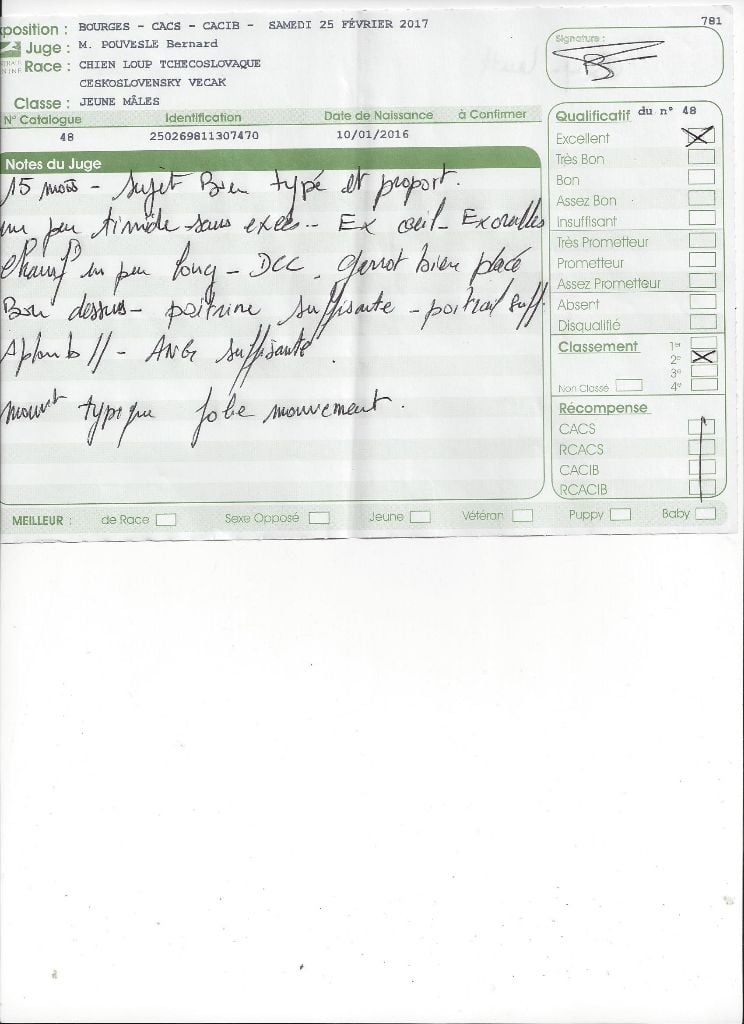 position : BOURGES - CACS - CACIB - SAMEDI 25 FÉVRIER 2017
781
Juge : M. POUVESLE Bernard
Signature :
Race : CHIEN LOUP TCHECOSLOVAQUE
CESKOSLOVENSKY VECAK
Classe : JEUNE MÂLES
N° Catalogue Identification Date de Naissance à Confirmer
48 250269811307470 10/01/2016
Notes du Juge
15 mois - Sujet Bien typé et proport.
un peu timide sans excès - Ex oeil - Ex oreilles
un peu long - DCC. garrot bien placé
Bon dessus - poitrine suffisante - poitrail suff.
Aplomb // - ANG suffisante.
mouvt typique jolie mouvement.
Qualificatif du n° 48
Excellent
Très Bon
Bon
Assez Bon
Insuffisant
Très Prometteur
Prometteur
Assez Prometteur
Absent
Disqualifié
Classement 1er
2e
3e
Non Classé 4e
Récompense
CACS
RCACS
CACIB
RCACIB
MEILLEUR : de Race Sexe Opposé Jeune Vétéran Puppy Baby